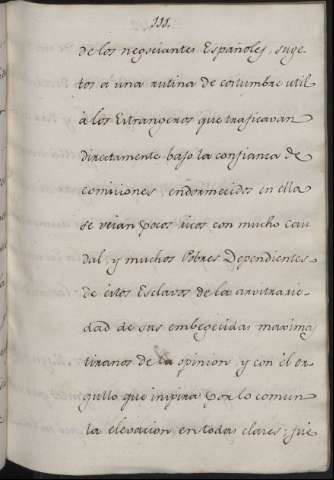 111.
de los negociantes Españoles, suge
tos a una rutina de costumbre util
à los Extrangeros que traficavan
directamente bajo la confianza de
comisiones, endormecidos en ella
se veian pocos ricos con mucho cau
dal, y muchos Pobres Dependientes
de éstos Esclavos de la arbitrarie
dad de sus embegecidas maximas
tiranos de la opinion, y con el or
gullo que inspira por lo comun
la elevacion en todas clases; fue